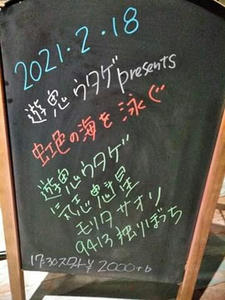 2021・2・18
遊思ウタゲ presents
虹色の海を泳ぐ
遊思ウタゲ
モリタサオリ
9413独りぼっち
17:30スタート ¥2000+b